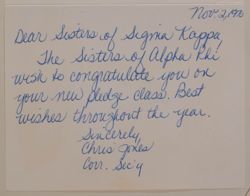 Nov 2,
Dear Sisters of Sigma Kappa,
The Sisters of Alpha Phi
wish to congratulate you on
your new pledge class. Best
wishes throughout the year.
Sincerely,
Chris Jones
Corr. Sec'y